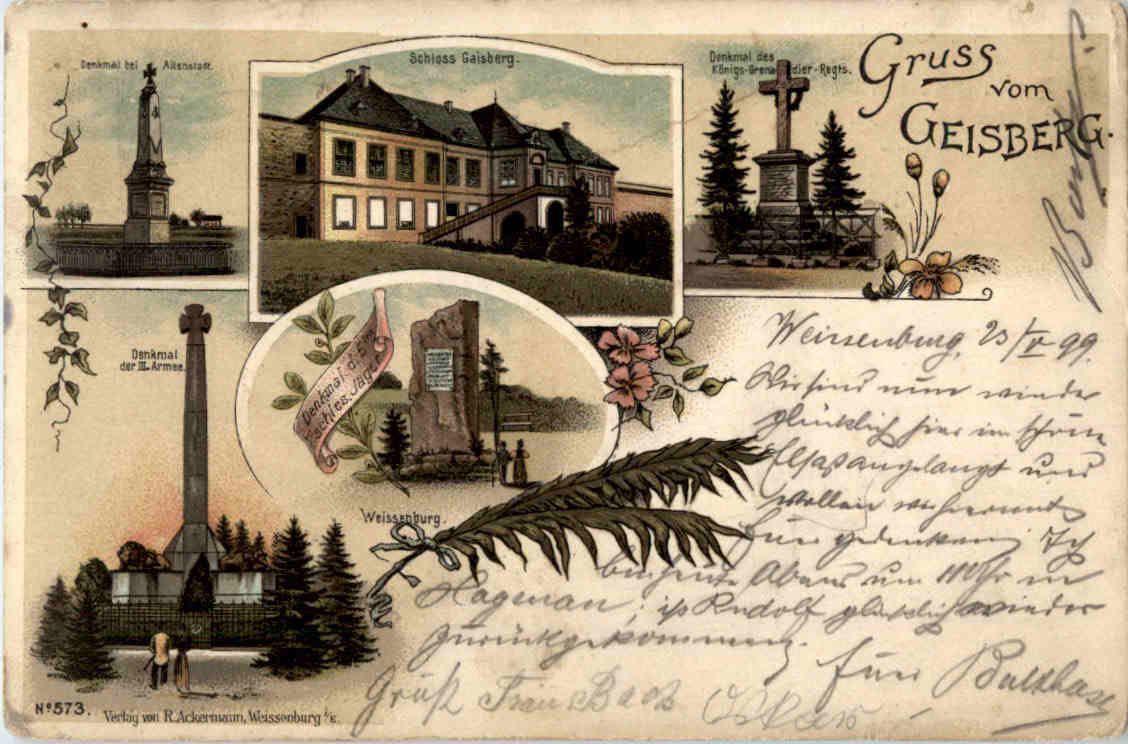 Denkmal bei Altenstadt.
Schloss Gaisberg.
Denkmal des
Königs-Grenadier-Regts.
Gruss
vom
GEISBERG.
Denkmal
der III. Armee.
Denkmal d. 5.
Schles. Jäger
Weissenburg.
Weissenburg, 23/V 99.
Wir sind nun wieder
glücklich hier im schönen
Elsaß angelangt und
wollen
gedenken. Ich
heute Abend um Uhr in
Hagenau, ist Rudolf glücklich wieder
zurückgekommen.
Balthasar
Gruß Frau Back
Nº 573.
Verlag von R. Ackermann, Weissenburg i/E.